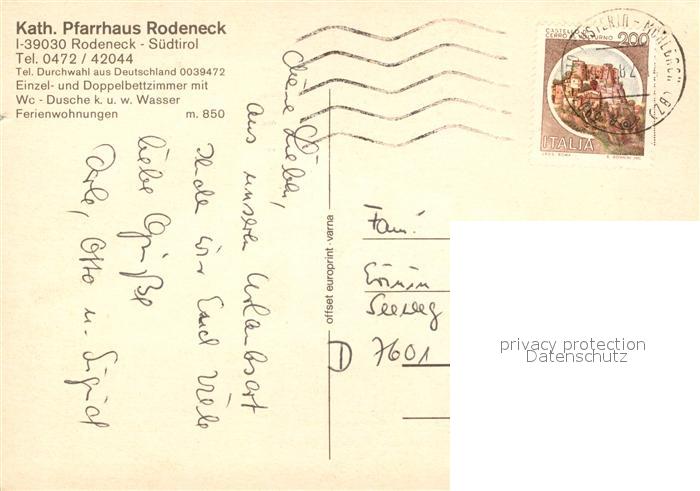 Kath. Pfarrhaus Rodeneck
I-39030 Rodeneck - Südtirol
Tel. 0472 / 42044
Tel. Durchwahl aus Deutschland 0039472
Einzel- und Doppelbettzimmer mit
Wc - Dusche k. u. w. Wasser
Ferienwohnungen m. 850
Meine Lieben,
aus unserem Urlaubsort
senden wir Euch viele
liebe Grüße
Otto u. Sigrid
offset europrint - varna
CASTELLO
CERRO AL VOLTURNO
200
ITALIA
Fam.
Seeweg
7601
D
privacy protection
Datenschutz